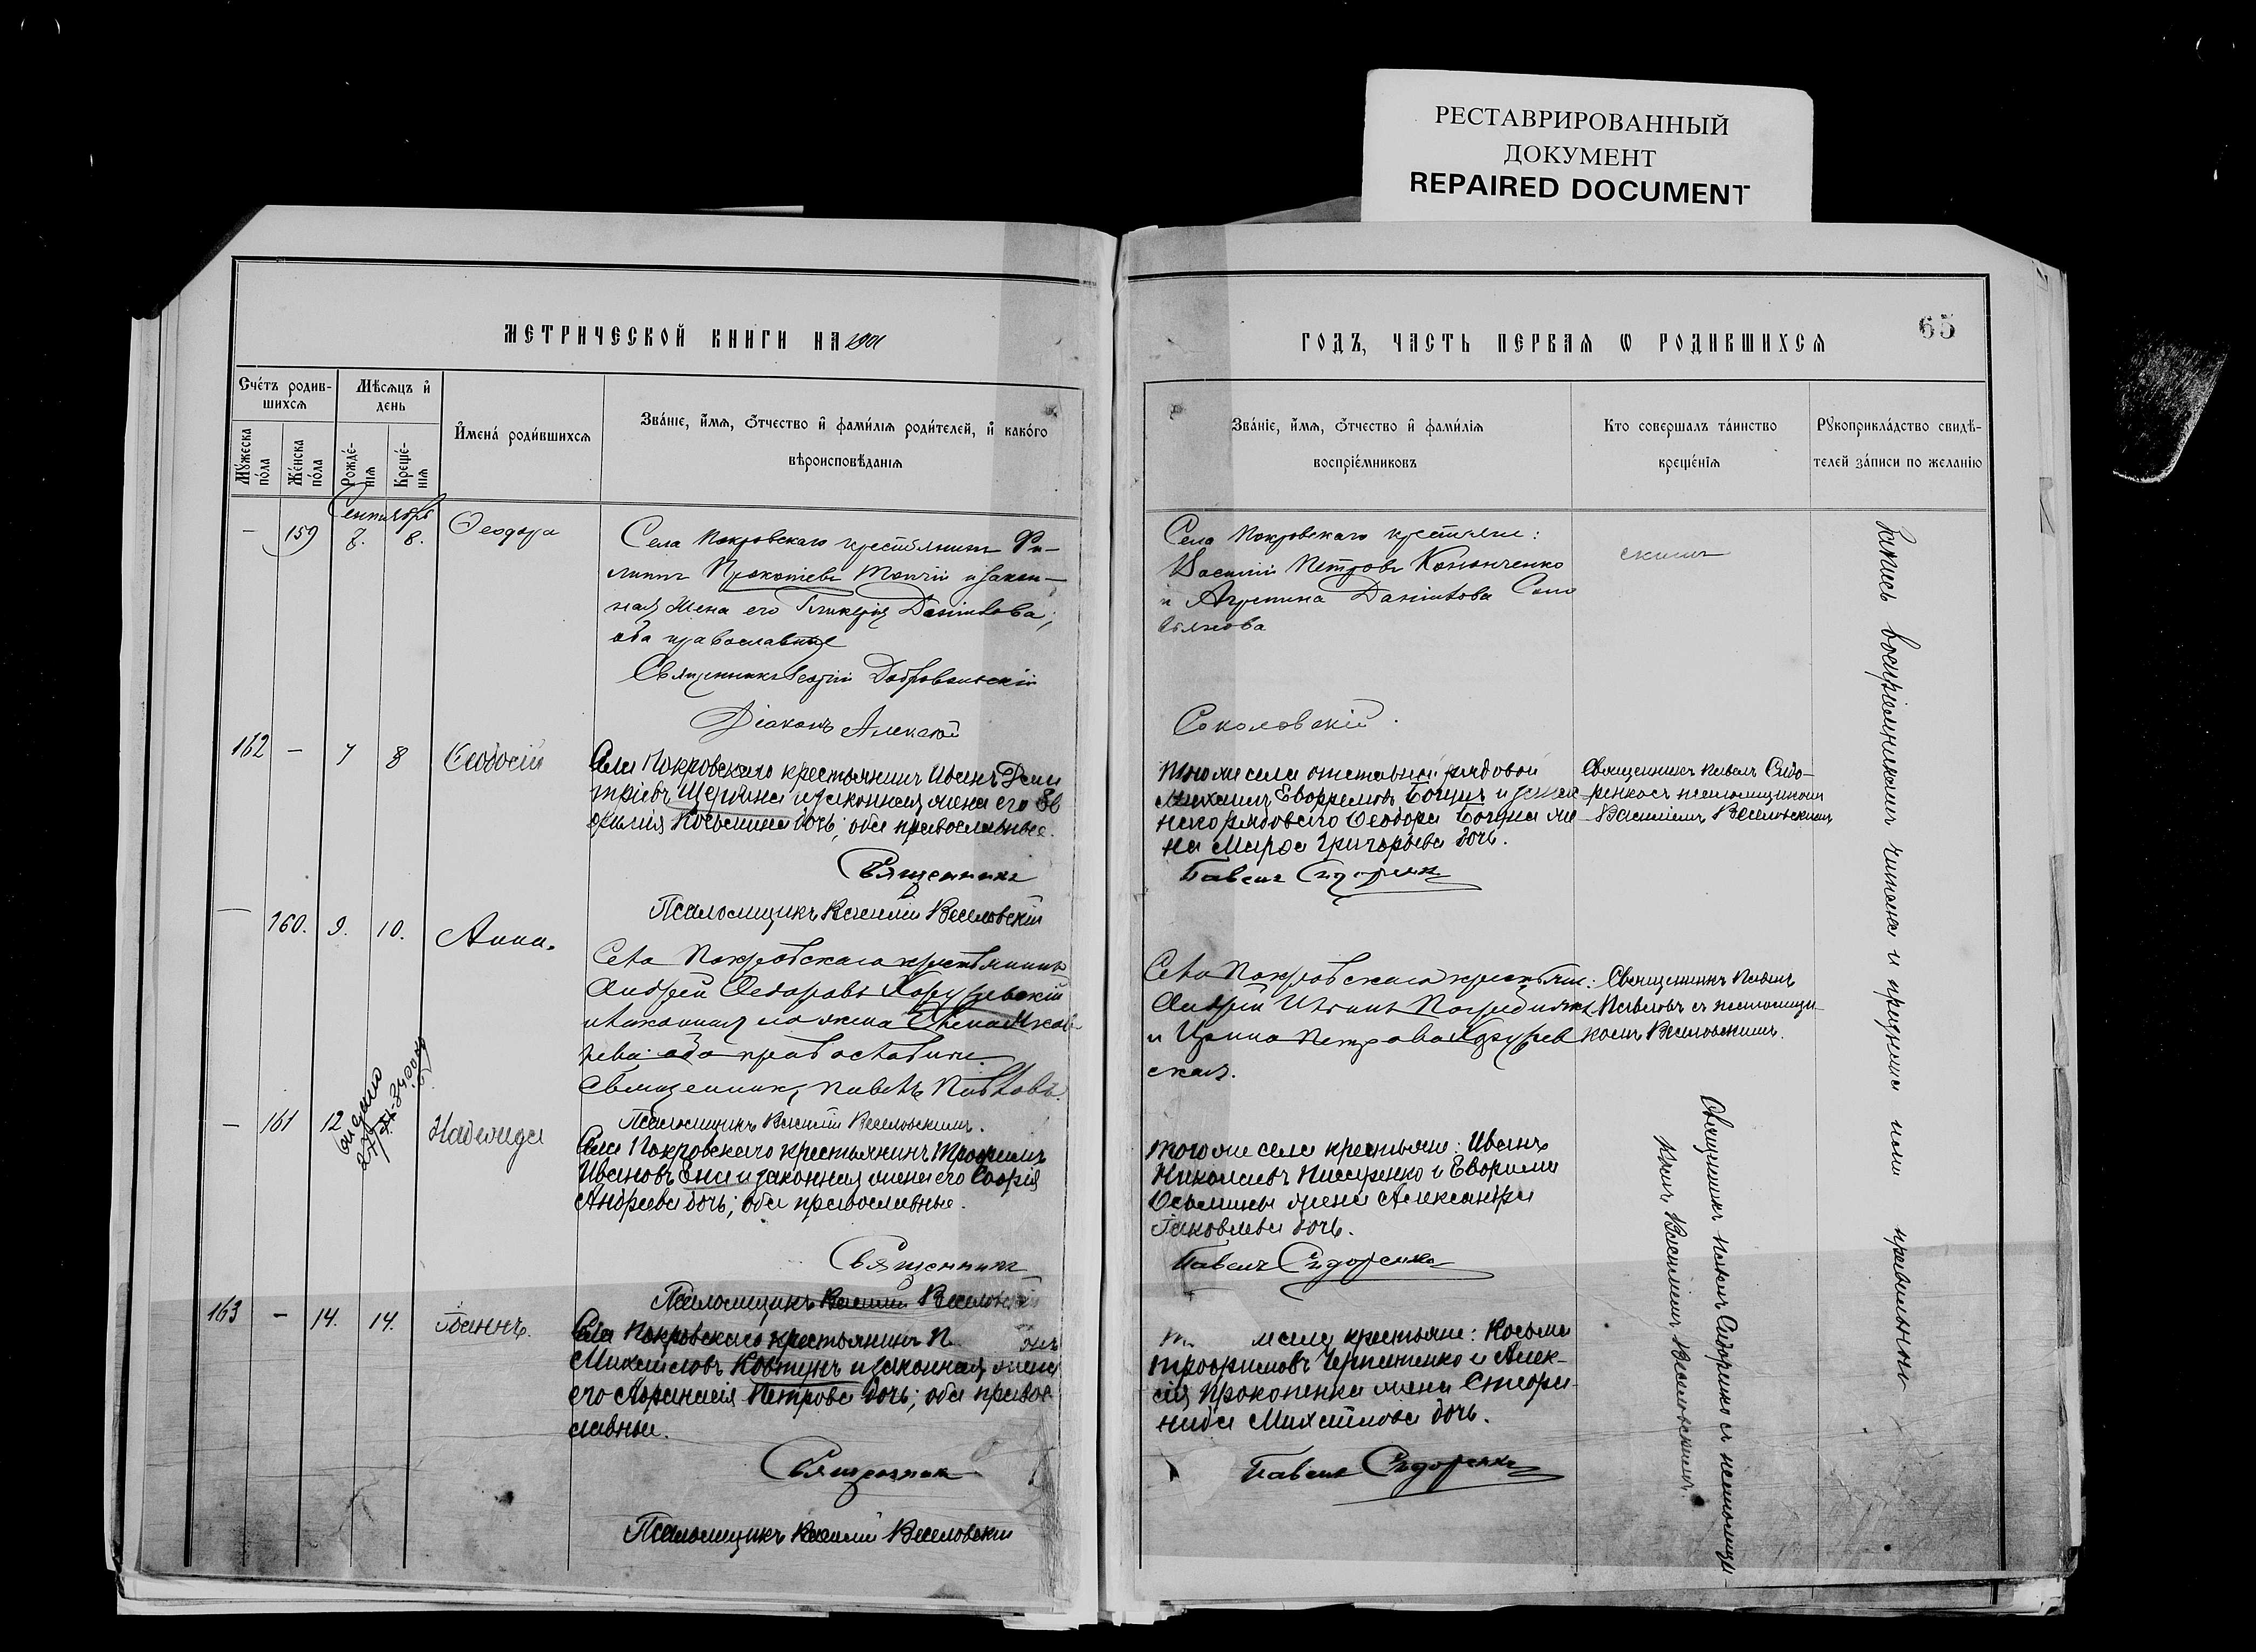 РЕСТАВРИРОВАННЫЙ
ДОКУМЕНТ
REPAIRED DOCUMENT
65
МЕТРИЧЕСКОЙ КНИГИ НА 1901
ГОДЪ, ЧАСТЬ ПЕРВАЯ Ѡ РОДИВШИХСЯ
Счетъ родив-
шихся
Мѣсяцъ и
день
Мужеска
пола
Женска
пола
Рожде-
нія
Креще-
нія
Имена родившихся
Званіе, имя, отчество и фамилія родителей, и какого
вѣроисповѣданія
Званіе, имя, отчество и фамилія
воспріемниковъ
Кто совершалъ таинство
крещенія
Рукоприкладство свидѣ-
телей записи по желанію
Сентябрь
— 159 7. 8. Ѳеодора
Села Покровскаго крестьянинъ Фи-
липпъ Прокопіевъ Топчій и закон-
ная жена его Гликерія Даніилова;
оба православные
Священникъ Георгій Добровольскій
Діаконъ Алексей
Села Покровскаго крестьяне:
Василій Петровъ Кононченко
и Агрипина Даніилова Соло
вьянова
Соколовскій.
162 — 7 8 Ѳеодосій
Села Покровскаго крестьянинъ Иванъ Дими
тріевъ Щербина и законная жена его Ев
фимія Косьмина дочь; оба православные.
Священникъ
Псаломщикъ Василій Веселовскій
Того же села отставной рядовой
Михаилъ Евфремовъ Богунъ и
рядоваго Ѳеодора Богуна же
на Марѳа Григорьева дочь.
Павелъ Сидоренко
Священникъ Павелъ Сидо-
ренко съ псаломщикомъ
Василіемъ Веселовскимъ
— 160. 9. 10. Анна.
Села Покровскаго крестьянинъ
Андрей Ѳедоровъ
и законная его жена Елена Яков
лева оба православные.
Священникъ Павелъ Павловъ.
Псаломщикъ Василій Веселовскій.
Села Покровскаго крестьяне:
Андрей Ивановъ
и Ирина Петрова
ская.
Священникъ Павелъ
Павловъ съ псаломщи-
комъ Веселовскимъ.
— 161 12 Надежда
Села Покровскаго крестьянинъ Трофимъ
Ивановъ Ена и законная жена его Софія
Андреева дочь; оба православные.
Священникъ
Псаломщикъ Василій Веселовскій
Того же села крестьяне: Иванъ
Николаевъ Писаренко и Евфима
Осьмины жена Александра
Іаковлева дочь.
Павелъ Сидоренко
163 — 14. 14. Іоаннъ.
Села Покровскаго крестьянинъ
Михаиловъ Ковтунъ и законная жена
его Афанасія Петрова дочь; оба православ-
славные.
Священникъ
Псаломщикъ Василій Веселовскій
села крестьяне: Косьма
Трофимовъ Черпатенко и Алек-
сія Прокопенка жена Стефа-
нида Михаилова дочь.
Павелъ Сидоренко
Священникъ Павелъ Сидоренко съ псаломщи-
комъ Василіемъ Веселовскимъ.
Запись воспріемникамъ читана и признана ими правильною